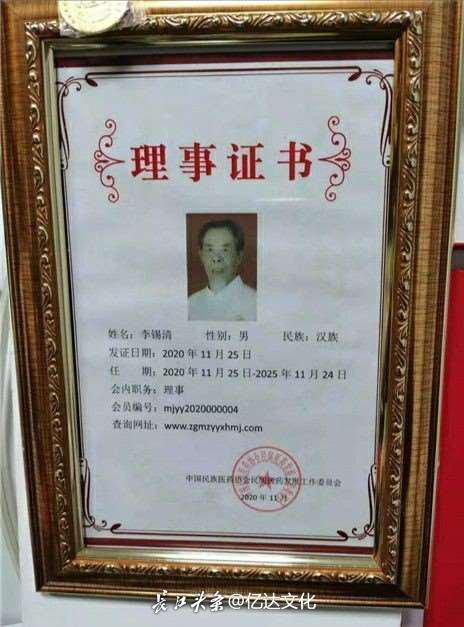 理事证书
姓名：李锡清 性别：男 民族：汉族
发证日期：2020 年 11 月 25 日
任 期：2020 年 11 月 25 日-2025 年 11 月 24 日
会内职务：理事
会员编号：mjyy2020000004
查询网址：www.zgmzyyxhmj.com
中国民族医药协会民间医药发展工作委员会
2020 年 11 月
长江头条@亿达文化